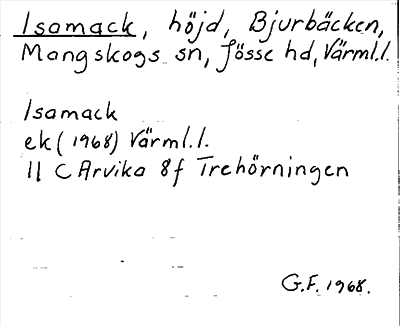 Isamack, höjd, Bjurbäcken,
Mangskogs sn, Jösse hd, Värml.l.
Isamack
ek (1968) Värml.l.
11 C Arvika 8f Trehörningen
G.F. 1968.